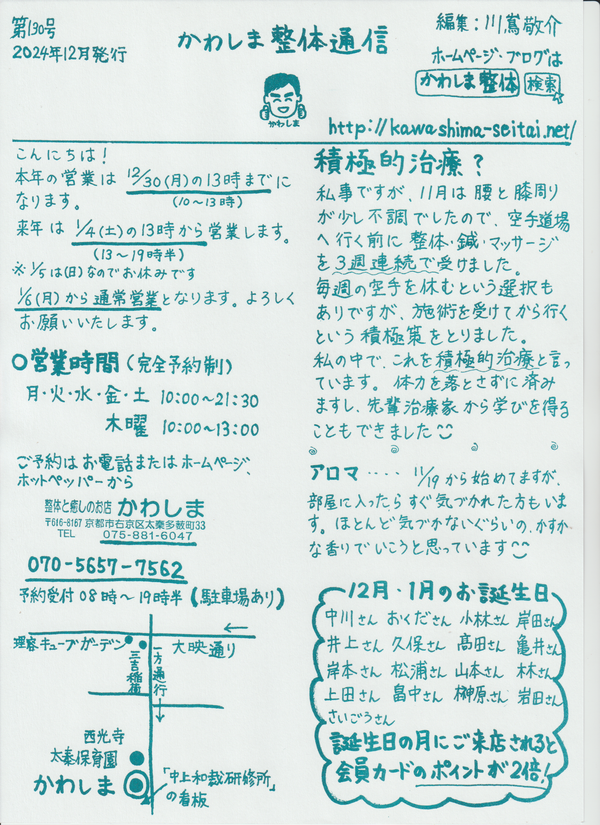 第130号
2024年12月発行
かわしま整体通信
かわしま
編集：川嶌敬介
ホームページ・ブログは
かわしま整体 検索
http://kawashima-seitai.net/
こんにちは！
本年の営業は 12/30(月)の13時までに
(10〜13時)
なります。
来年は 1/4(土)の13時から営業します。
(13〜19時半)
※1/5は(日)なのでお休みです
1/6(月)から通常営業となります。よろしく
お願いいたします。
○営業時間(完全予約制)
月・火・水・金・土 10:00〜21:30
木曜 10:00〜13:00
ご予約はお電話またはホームページ、
ホットペッパーから
整体と癒しのお店 かわしま
〒616-8167 京都市右京区太秦多薮町33
TEL 075-881-6047
070-5657-7562
予約受付 08時〜19時半(駐車場あり)
理容キューブガーデン
三吉稲荷
一方通行
大映通り
西光寺
太秦保育園
かわしま
「中上和裁研修所」
の看板
積極的治療？
私事ですが、11月は腰と膝周り
が少し不調でしたので、空手道場
へ行く前に整体・鍼・マッサージ
を3週連続で受けました。
毎週の空手を休むという選択も
ありですが、施術を受けてから行く
という積極策をとりました。
私の中で、これを積極的治療と言っ
ています。体力を落とさずに済み
ますし、先輩治療家から学びを得る
こともできました
アロマ‥‥ 11/19から始めてますが、
部屋に入ったらすぐ気づかれた方もいま
す。ほとんど気づかないぐらいの、かすか
な香りでいこうと思っています
12月・1月のお誕生日
中川さん おくださん 小林さん 岸田さん
井上さん 久保さん 髙田さん 亀井さん
岸本さん 松浦さん 山本さん 林さん
上田さん 畠中さん 榊原さん 岩田さん
さいごうさん
誕生日の月にご来店されると
会員カードのポイントが2倍！